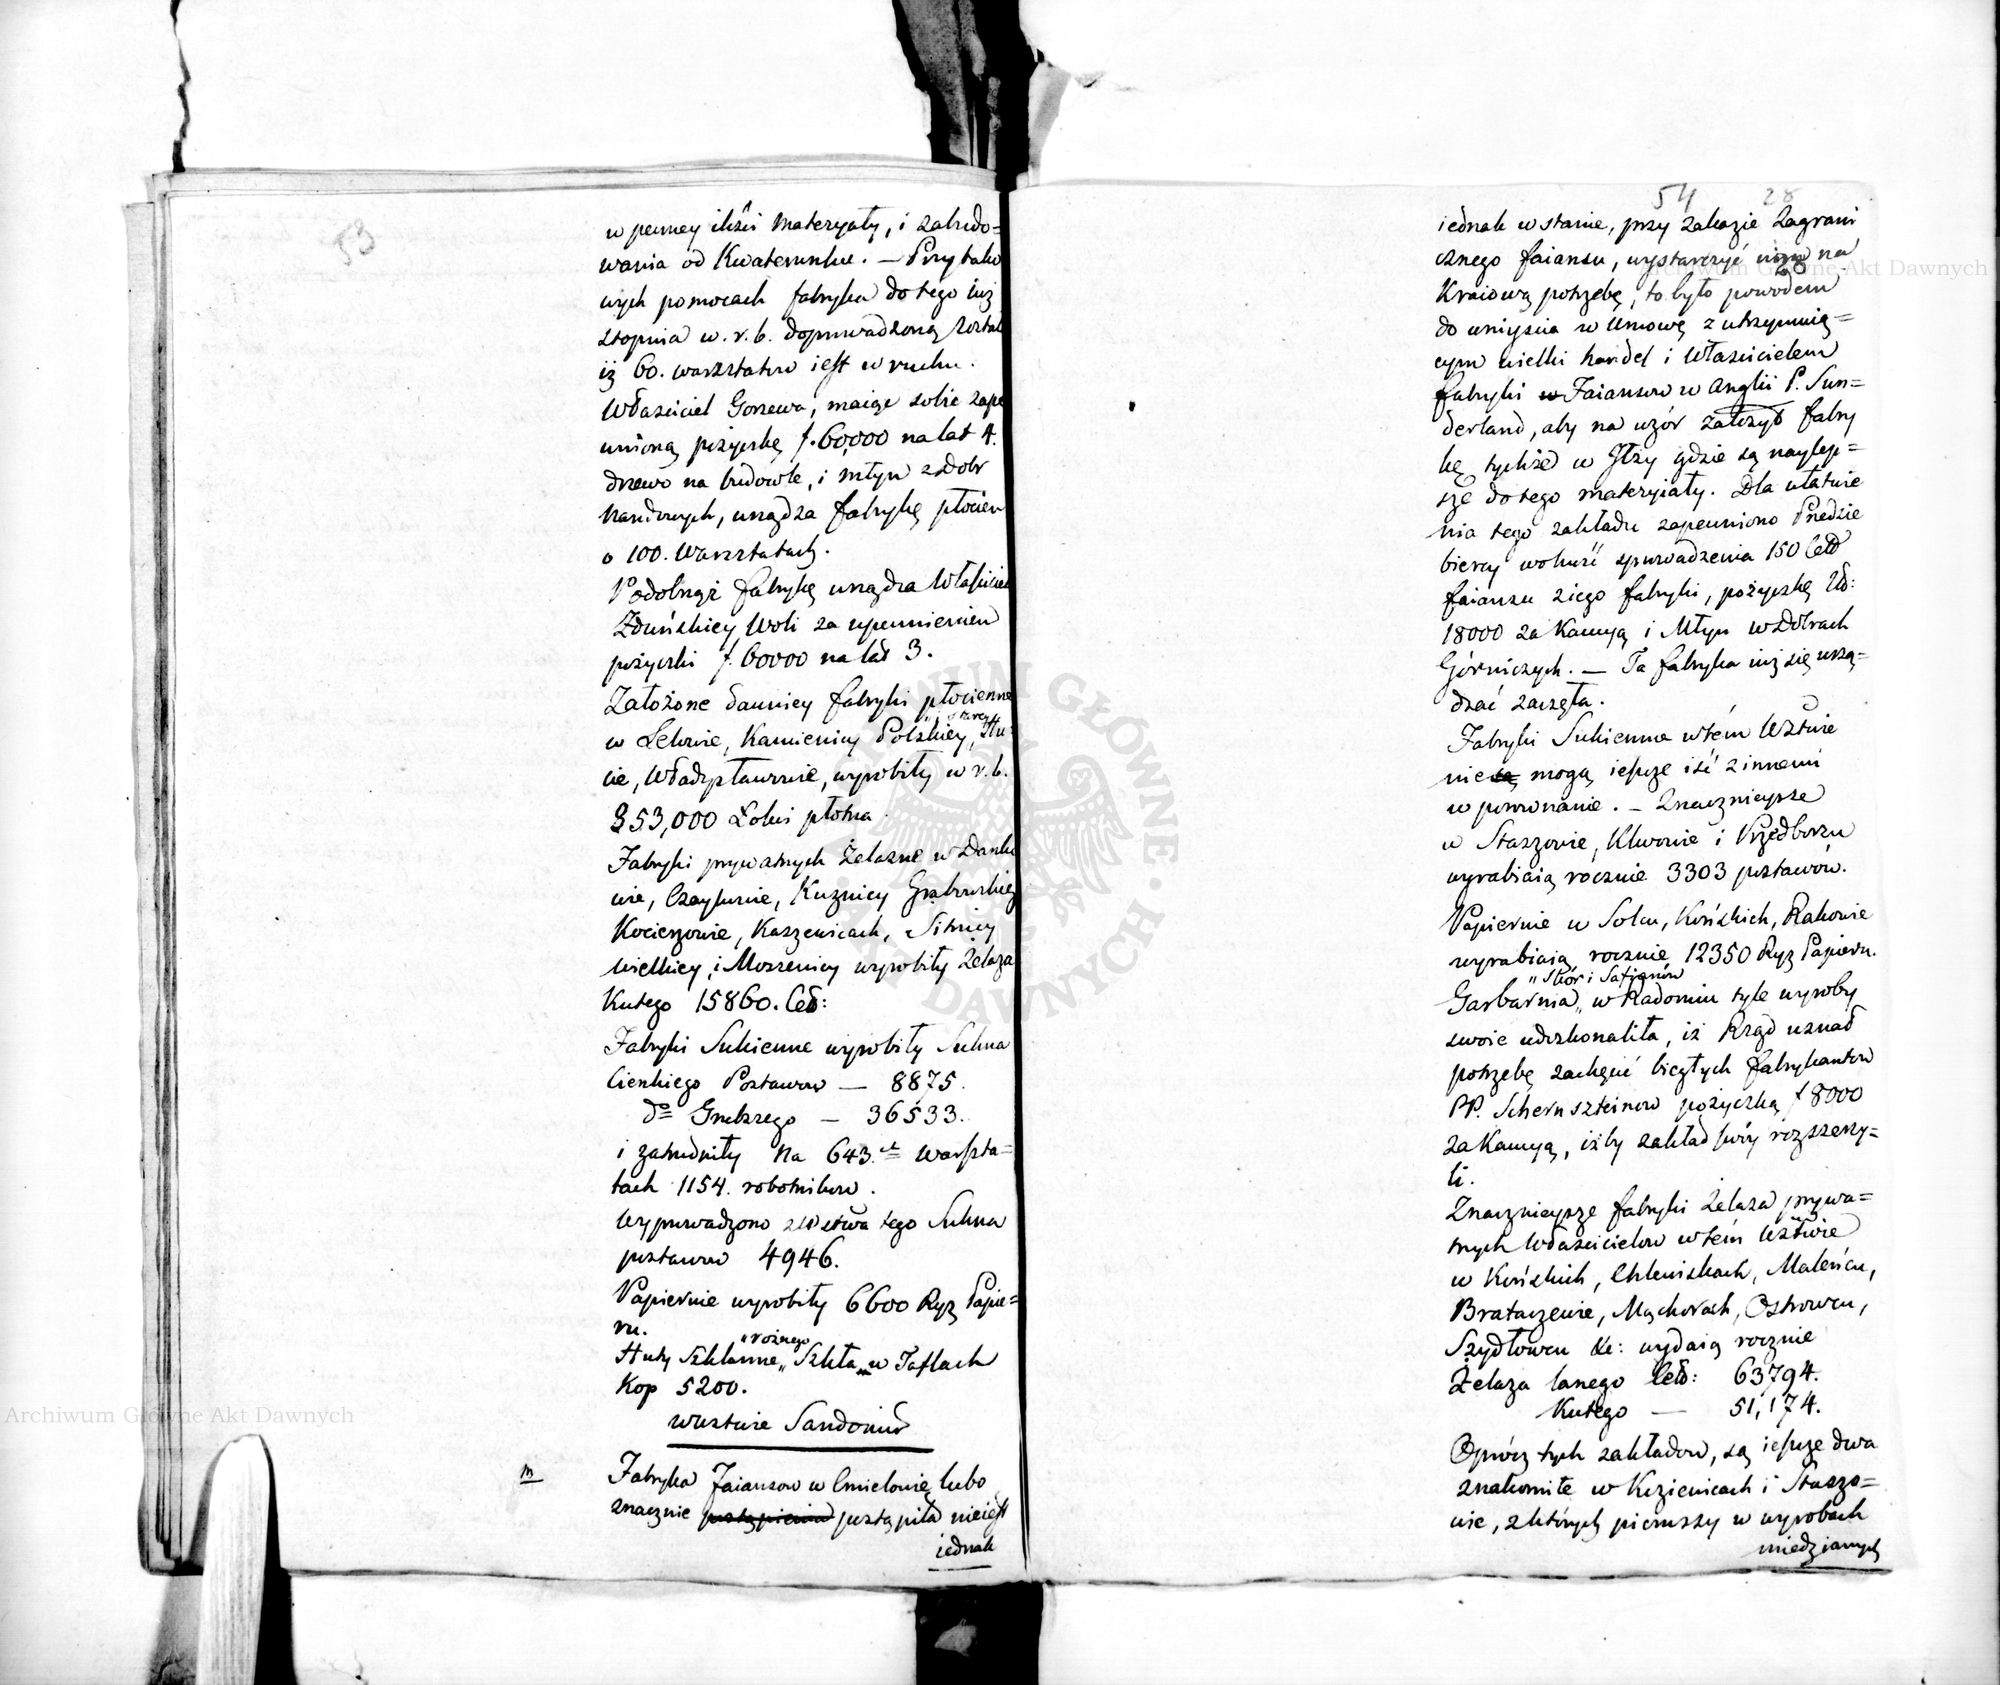 53
w pewney ilości materyały, i zabudo=
wania od Kwaterunku. — Przy tako
wych pomocach fabryka do tego iuż
stopnia w. r. b. doprowadzoną został
iż 60. warsztatów iest w ruchu.
Właściciel Gorzewa, maiąc sobie zape
wnioną pożyczkę f. 60,000 na lat 4.
drzewo na budowle, i młyn z Dobr
Narodowych, urządza fabrykę płócien
o 100. Warsztatach.
Podobnąż fabrykę urządza Właściciel
Zduńskiey Woli za upewnieniem
pożyczki f. 60000 na lat 3.
Założone dawniey fabryki płócienne
w Lelowie, Kamienicy Polskiey, Starey Hu=
cie, Władysławowie, wyrobiły w r. b.
353,000 Łokci płótna
Fabryki prywatnych żelazne w Danko
wie,
Kuznicy Grabowskiey
Wielkiey, i Moszenicy wyrobiły Żelaza
Kutego 15860. Cetn:
Fabryki Sukienne wyrobiły Sukna
Cienkiego Postawow — 8875.
do Grubszego — 36533.
i zatrudniły na 643. warszta=
tach 1154. robotników.
Wyprowadzono z Wdztwa tego Sukna
postawow 4946.
Papiernie wyrobiły 6600 Ryz Papie=
ru.
Huty Szklanne „różnego Szkła„ w Taflach
Kop 5200.
w Wdztwie Sandomir
m
Fabryka Faiansow w Cmielowie, lubo
znacznie postąpienia postąpiła nieiest
iednak
54 28
iednak w stanie, przy zakazie Zagrani
cznego faiansu, wystarczyć na
28
Kraiową potrzebę, to było powodem
do wniyścia w Umowę z utrzymuią=
cym wielki handel i Właścicielem
fabryki w Faiansow w Anglii P. Sun=
derland, aby na wzór założył fabry
kę tychże w Iłży gdzie są naylep=
sze do tego materyiały. Dla ułatwie
nia tego zakładu zapewniono Przedzie
biercy wolność sprowadzenia 150 Cetn
faiansu z iego fabryki, pożyczkę Zł:
18000 za Kaucyą i Młyn w Dobrach
Górniczych. — Ta fabryka iuż się urzą=
dzać zaczęła.
Fabryki Sukienne w tém Wdztwie
nie są mogą ieszcze iść z innemi
w porównanie. — Znacznieysze
w Staszowie, Klwowie i Przedborzu
wyrabiaią rocznie 3303 postawów.
Papiernie w Solcu, Końskich, Rakowie
wyrabiaią rocznie 12350 Ryz Papieru.
Garbarnia „Skór i Safianów„ w Radomiu tyle wyroby
swoie udoskonaliła, iż Rząd uznał
potrzebę zachęcić biegłych fabrykantów
PP. Schernszteinow pożyczką f 8000
za Kaucyą, iżby zakład swóy rozszerzy=
li.
Znacznieysze fabryki Żelaza prywa=
tnych Właścicielow w tém Wdztwie
w Końskich, Chlewiskach, Maleńcu,
Machorach, Ostrowcu,
Szydłowcu &c: wydaią rocznie
Żelaza lanego Cetn: 63794.
Kutego — 51,174.
Oprócz tych zakładow, są ieszcze dwa
znakomite w Kozienicach i Staszo=
wie, z których pierwszy w wyrobach
miedzianych
Archiwum Główne Akt Dawnych
Archiwum Główne Akt Dawnych
ARCHIWUM GŁÓWNE AKT DAWNYCH